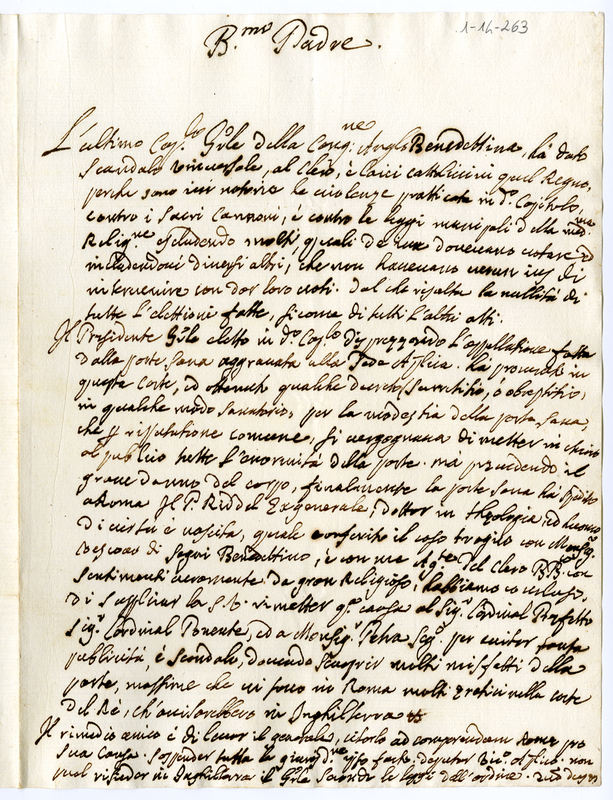 1-14-263
B.mo Padre.
L'ultimo Cap.lo G'ńle della Cong.ne Anglo Benedettina, há dato
scandalo universale, al Clero, é laici cattolici in quel Regno,
perche sono iui notorie le violenze pratticate in d.o Capitolo,
contro i Sacri Cannoni, é contro le leggi municipali della med.ma
Relig.ne escludendo molti quali de iure doveuano votare ed
includendoui diuersi altri, che non haueuano uerun ius di
interuenire con dar loro uoti. Dal che risulta la nullitá di
tutte l'elettioni fatte, si come di tutti l'altri atti.
Il Presidente G'ńle eletto in d.o Cap.lo disprezzando l'appellatione fatta
dalla parte sana aggrauata alla Sede Ap'lica. há procurato in
questa Corte, ed ottenuto qualche decreto surrettitio, ó obrettitio,
in qualche modo sanatorio, per la modestia della parte sana,
che p riputatione comune, si uergognaua di metter in chiaro
al publico tutte l'enormitá della parte. má preuedendo il
graue danno del corpo, finalmente la parte sana há spedito
a Roma Il P. Riddel Exgenerale, Dottor in theologia, ed huomo
di uirtù é nascita, quale conferito il caso con Monsig.r
Vescouo di Segni Benedettino, é con me Ag.te del Clero
sentimenti ueramente da gran Religioso, habbiamo concluso
di supplicar la S. V. rimetter q.a causa al Sig.r Cardinal Prefetto
Sig.r Cardinal Ponente, ed a Monsig.r Petra Seg.r per euitar
publicitá, é scandalo, douendo scuoprir molti misfatti della
parte, massime che ui sono in Roma molti pratici nella corte
del Ré, ch'auisarebbero in Inghilterra
Il rimedio unico é di leuar il generale, citarlo ad comparendum Rome pro
sua Causa. sospender tutta la giurisd.ne ipso facto, deputar Vic.o ap'lico. non
puol risieder in Inghilterra il G'ńle secondo le leggi dell'ordine.